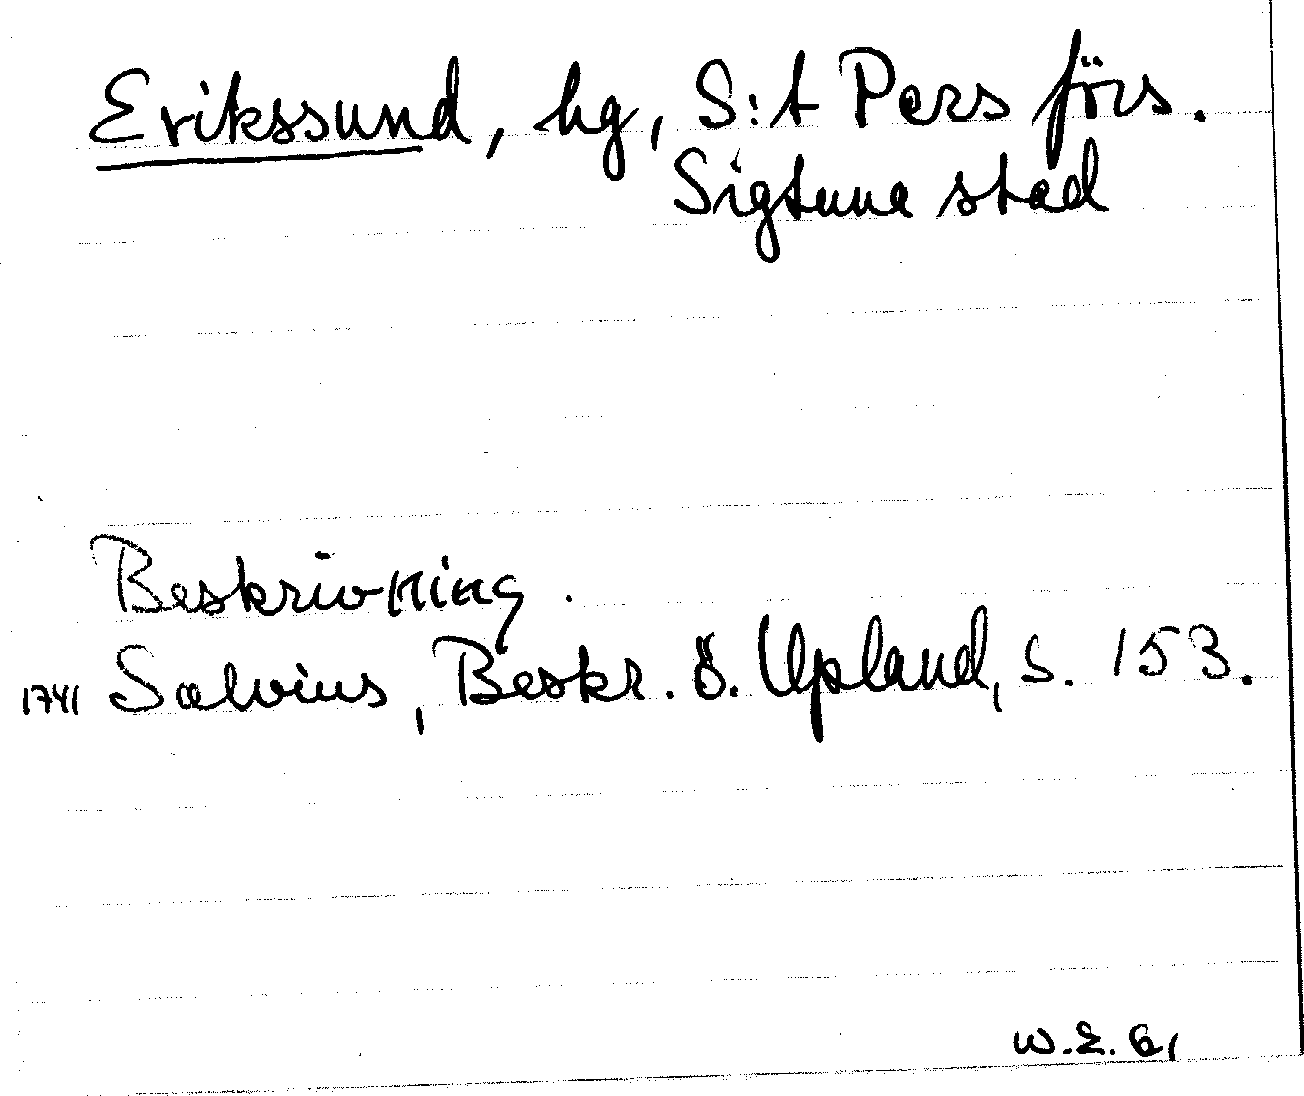 Erikssund, hg, S:t Pers förs.
Sigtuna stad
Beskrivning.
1741 Salvius, Beskr. ö. Upland, s. 153.
W.E.